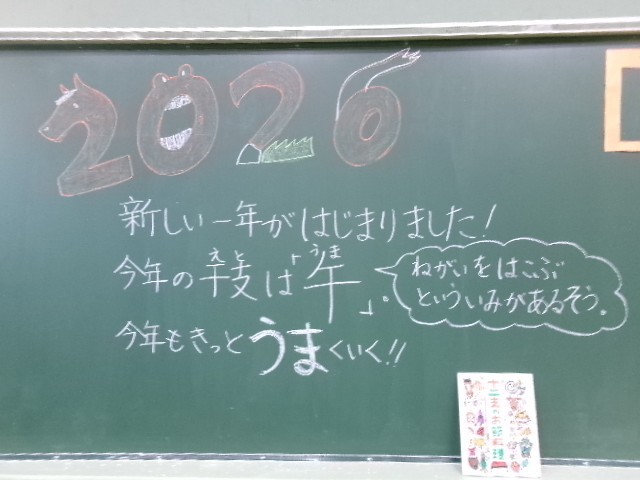 2026
新しい一年がはじまりました!
えと うま
今年の干支は「午」。
ねがいをはこぶ
といういみがあるそう。
今年もきっとうまくいく!!
十二支のお節料理